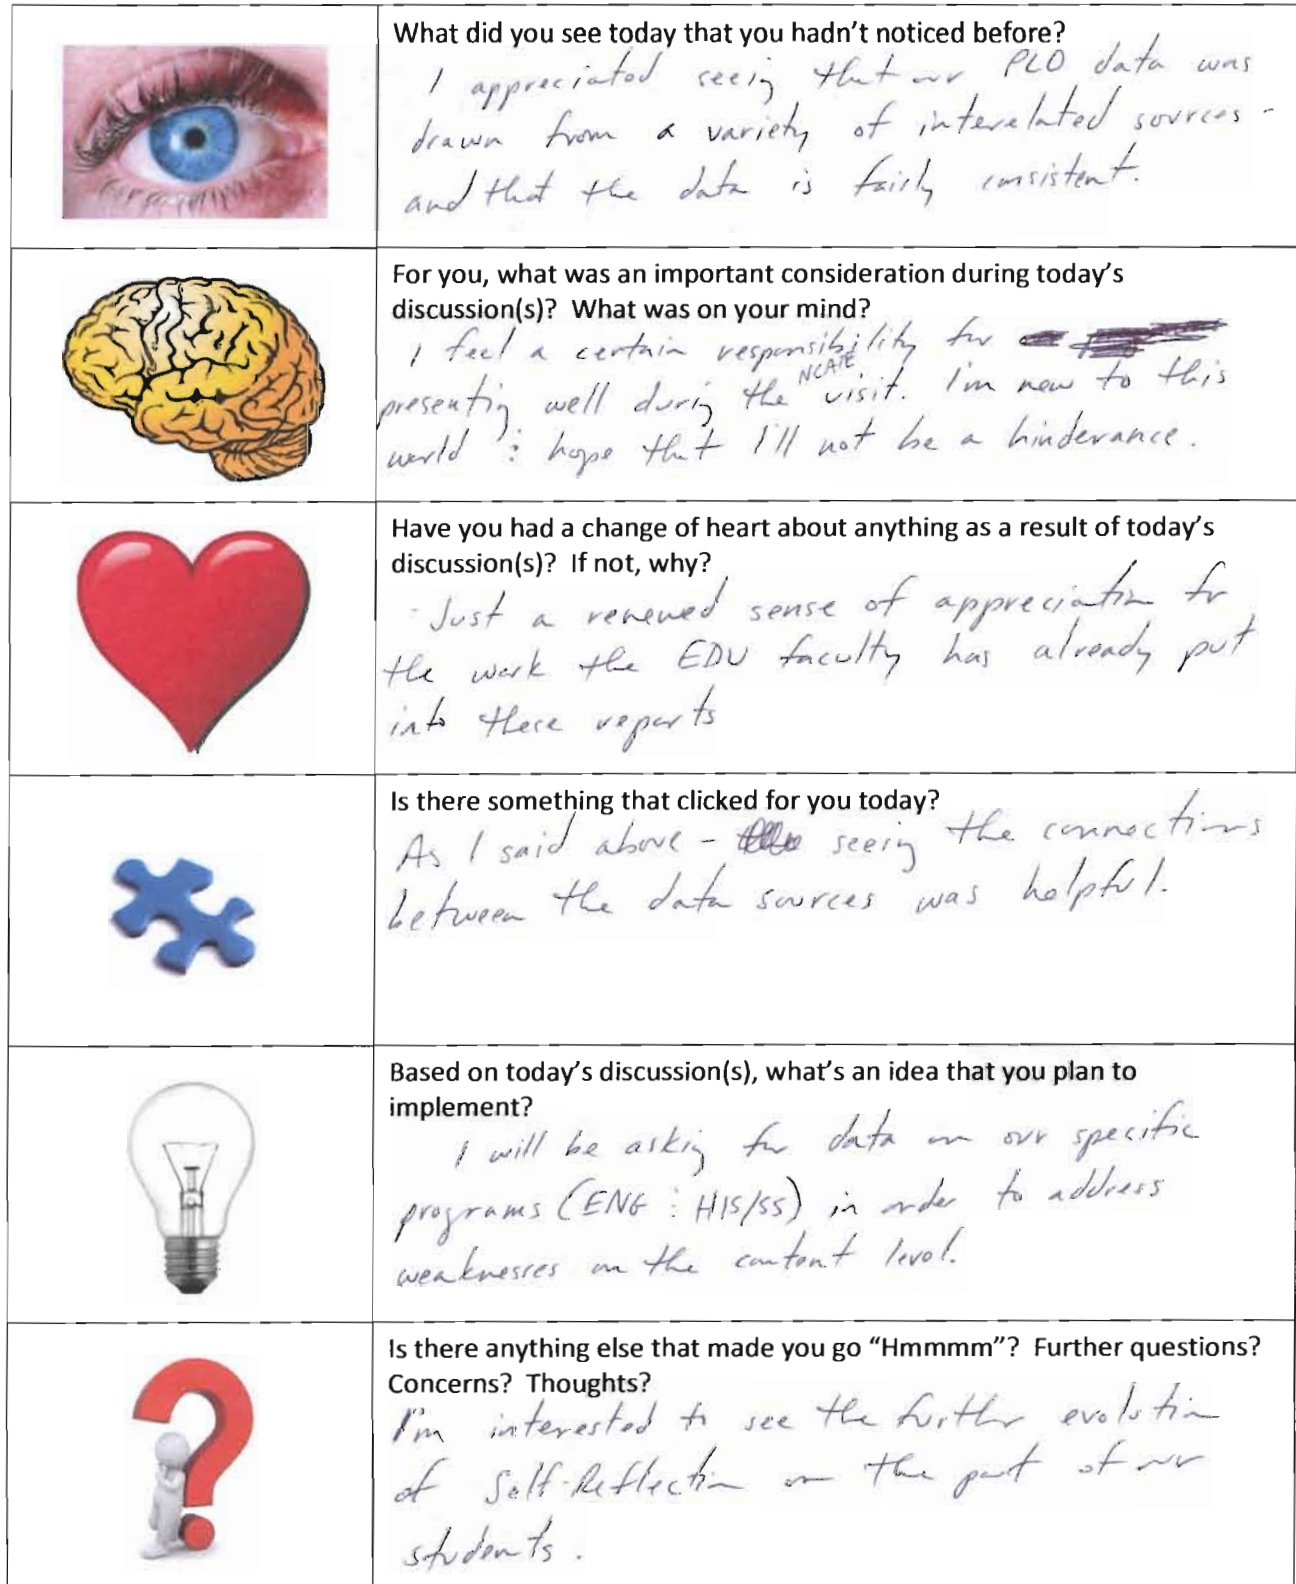 What did you see today that you hadn't noticed before?
I appreciated seeing that our PLO data was
drawn from a variety of interelated sources -
and that the data is fairly consistent.
For you, what was an important consideration during today's
discussion(s)? What was on your mind?
I feel a certain responsibility for
presenting well during the NCATE visit. I'm new to this
world & hope that I'll not be a hinderance.
Have you had a change of heart about anything as a result of today's
discussion(s)? If not, why?
- Just a renewed sense of appreciation for
the work the EDU faculty has already put
into these reports
Is there something that clicked for you today?
As I said above - seeing the connections
between the data sources was helpful.
Based on today's discussion(s), what's an idea that you plan to
implement?
I will be asking for data on our specific
programs (ENG & HIS/SS) in order to address
weaknesses on the content level.
Is there anything else that made you go "Hmmmm"? Further questions?
Concerns? Thoughts?
I'm interested to see the further evolution
of Self-Reflection on the part of our
students.